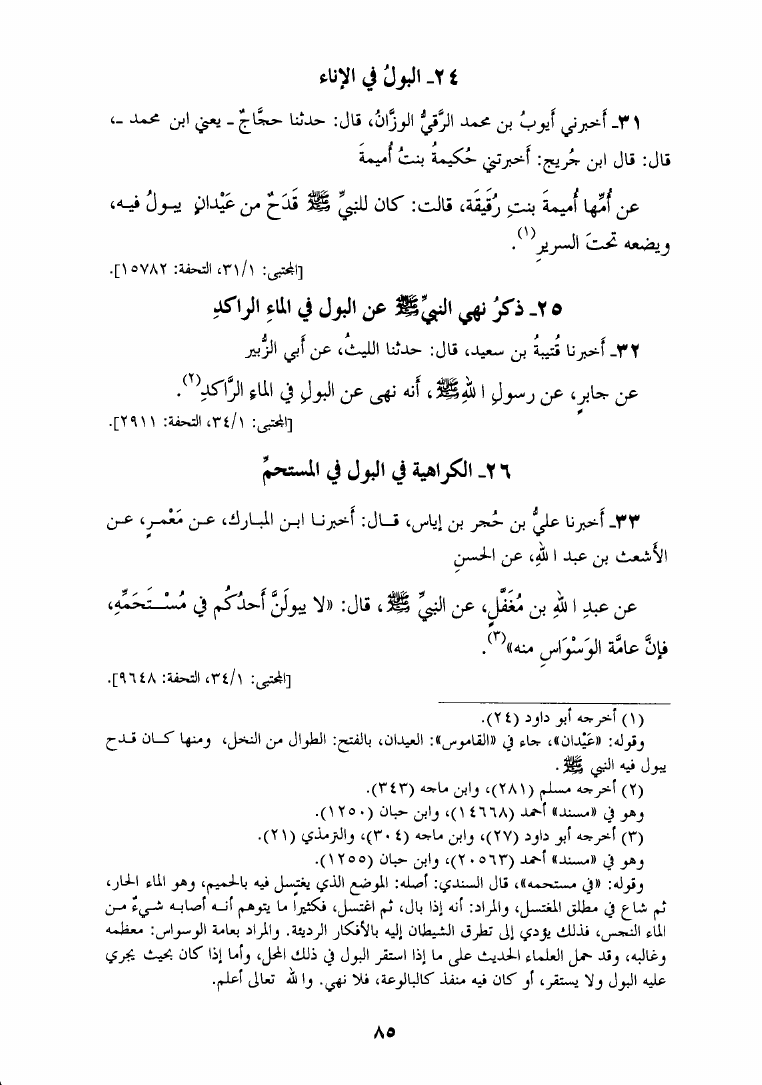 ٢٤ـ البولُ في الإناء
٣١ـ أخبرني أيوبُ بن محمد الرَّقيُّ الوزَّانُ، قال: حدثنا حجَّاجٌ ـ يعني ابن محمد ـ،
قال: قال ابن جُريج: أخبرتني حُكيمةُ بنتُ أُميمةَ
عن أُمِّها أُميمةَ بنتِ رُقَيقَة، قالت: كان للنبيِّ ﷺ قَدَحٌ من عَيْدانٍ يبولُ فيه،
ويضعه تحتَ السريرِ(١).
[المجتبى: ٣١/١، التحفة: ١٥٧٨٢].
٢٥ـ ذكرُ نهي النبيِّ ﷺ عن البول في الماءِ الراكدِ
٣٢ـ أخبرنا قُتيبةُ بن سعيد، قال: حدثنا الليثُ، عن أبي الزُّبير
عن جابرٍ، عن رسولِ اللهِ ﷺ، أنه نهى عن البولِ في الماءِ الرَّاكدِ(٢).
[المجتبى: ٣٤/١، التحفة: ٢٩١١].
٢٦ـ الكراهية في البول في المستحمِّ
٣٣ـ أخبرنا عليُّ بن حُجر بن إياس، قال: أخبرنا ابن المبارك، عن مَعْمرٍ، عن
الأشعث بن عبد اللهِ، عن الحسنِ
عن عبدِ اللهِ بن مُغَفَّلٍ، عن النبيِّ ﷺ، قال: «لا يبولَنَّ أحدُكُم في مُسْتَحَمِّهِ،
فإنَّ عامَّة الوَسْوَاسِ منه»(٣).
[المجتبى: ٣٤/١، التحفة: ٩٦٤٨].
(١) أخرجه أبو داود (٢٤).
وقوله: «عَيْدان»، جاء في «القاموس»: العيدان، بالفتح: الطوال من النخل، ومنها كان قدح
يبول فيه النبي ﷺ.
(٢) أخرجه مسلم (٢٨١)، وابن ماجه (٣٤٣).
وهو في «مسند» أحمد (١٤٦٦٨)، وابن حبان (١٢٥٠).
(٣) أخرجه أبو داود (٢٧)، وابن ماجه (٣٠٤)، والترمذي (٢١).
وهو في «مسند» أحمد (٢٠٥٦٣)، وابن حبان (١٢٥٥).
وقوله: «في مستحمه»، قال السندي: أصله: الموضع الذي يغتسل فيه بالحميم، وهو الماء الحار،
ثم شاع في مطلق المغتسل، والمراد: أنه إذا بال، ثم اغتسل، فكثيراً ما يتوهم أنه أصابه شيءٌ من
الماء النجس، فذلك يؤدي إلى تطرق الشيطان إليه بالأفكار الرديئة. والمراد بعامة الوسواس: معظمه
وغالبه، وقد حمل العلماء الحديث على ما إذا استقر البول في ذلك المحل، وأما إذا كان بحيث يجري
عليه البول ولا يستقر، أو كان فيه منفذ كالبالوعة، فلا نهي. والله تعالى أعلم.
٨٥